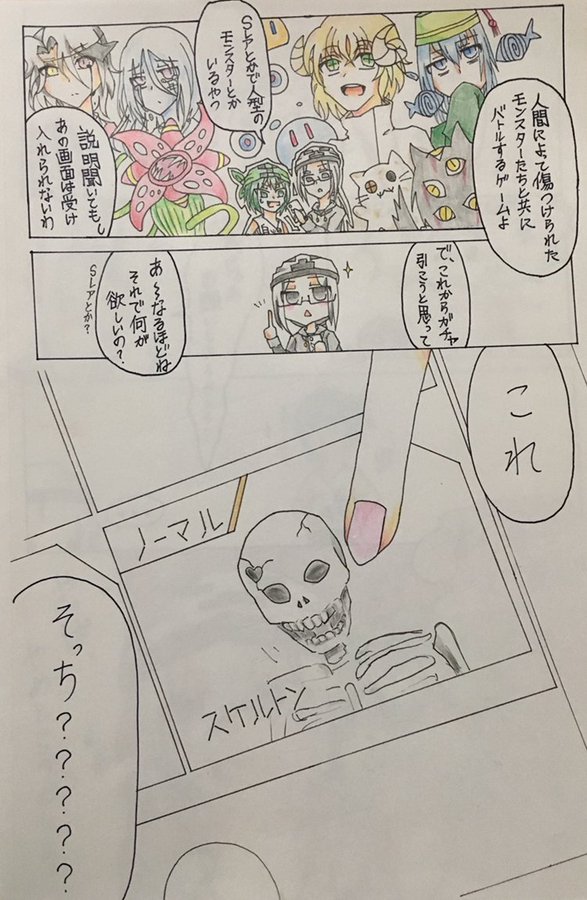 人間によって傷つけられた
モンスターたちと共に
バトルするゲームよ
SレアとかSSで人型の
モンスターとか
いるやつ
説明聞いてもし
あの画面は受け
入れられないわ
で、これからガチャ
引こうと思って
あ〜なるほどね
それで何が
欲しいの？
Sレアとか？
これ
ノーマル
スケルトン
そっち？？？？？